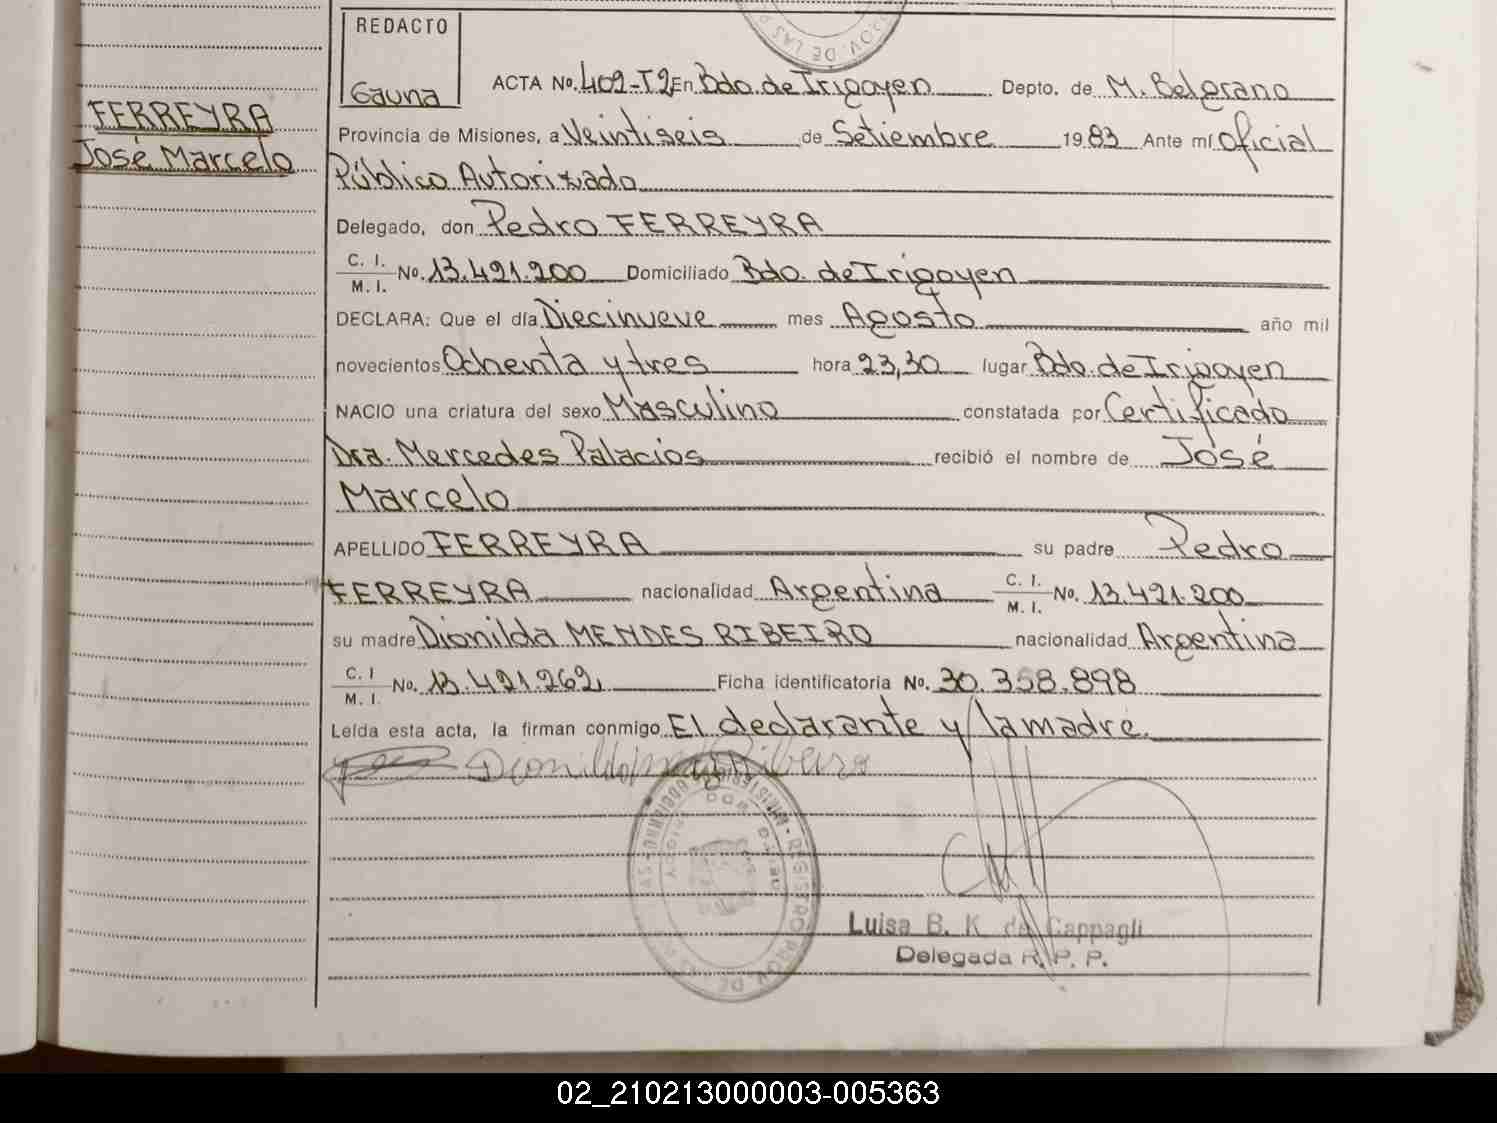 REDACTO
Gauna
ACTA No. 409-T2 En Bdo. de Irigoyen Depto. de M. Belgrano
FERREYRA
José Marcelo
Provincia de Misiones, a Veintiseis de Setiembre 1983 Ante mí Oficial
Público Autorizado
Delegado, don Pedro FERREYRA
C. I.
M. I. No. 13.421.200 Domiciliado Bdo. de Irigoyen
DECLARA: Que el día Diecinueve mes Agosto año mil
novecientos Ochenta y tres hora 23,30 lugar Bdo. de Irigoyen
NACIO una criatura del sexo Masculino constatada por Certificado
Dra. Mercedes Palacios recibió el nombre de José
Marcelo
APELLIDO FERREYRA su padre Pedro
FERREYRA nacionalidad Argentina C. I. M. I. No. 13.421.200
su madre Dionilda MENDES RIBEIRO nacionalidad Argentina
C. I
M. I. No. 13.421.262 Ficha identificatoria No. 30.358.898
Leída esta acta, la firman conmigo El declarante y la madre.
Luisa B. K. de Cappagli
Delegada R. P. P.
02_210213000003-005363